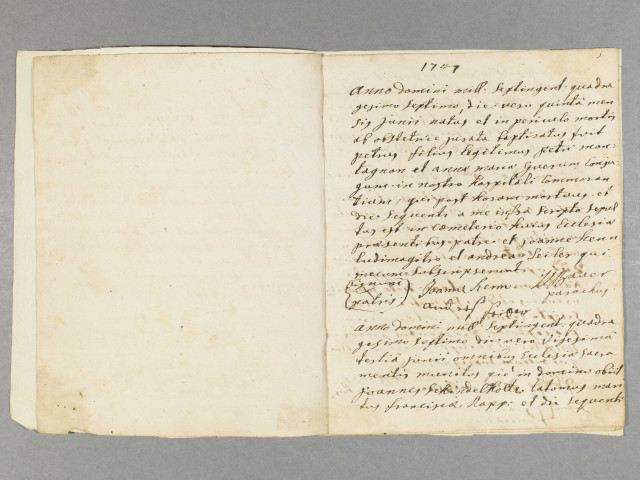 1747
anno domini mill: septingent: quadra
gesimo septimo, die vero quintâ men
sis junii natus et in periculo mortis
ab obstetrice jurata baptisatus fuit
petrus filius legitimus petri mon-
tagnon et annæ mariæ Conju-
gum in nostro hospitali Commoran
tium, qui post horam mortuus et
die sequenti a me infra scripto sepul
tus est in Cemeterio hujus Ecclesiæ
præsentibus patre et joanne
ludimagistro et andrea Seiler qui
mecum subscripserunt
signum
patris
parochus
anno domini mill: septingent: quadra
gesimo septimo die vero vigesima
tertiâ junii omnibus Ecclesiæ sacra
mentis munitus piè in domino obiit
joannes latomus mari
tus franciscæ Rapp: et die sequenti